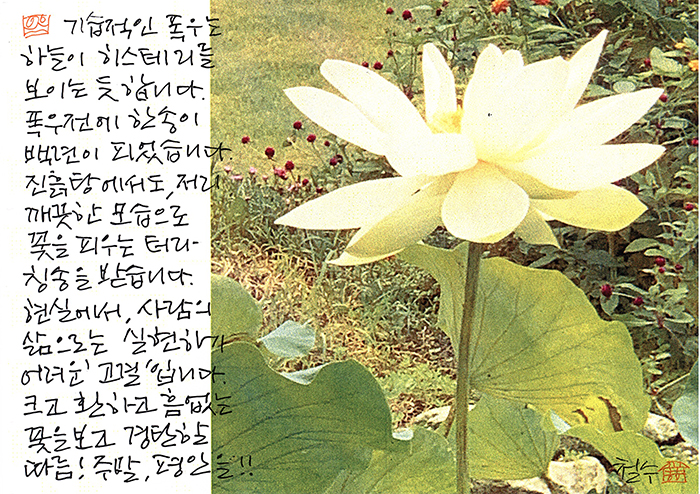 기습적인 폭우는
하늘이 히스테리를
보이는 듯 합니다.
폭우전에 한송이
백련이 피었습니다.
진흙탕에서도, 저리
깨끗한 모습으로
꽃을 피우는 터라-
칭송을 받습니다.
현실에서, 사람의
삶으로는 실현하기
어려운 '고결'입니다.
크고 환하고 흠없는
꽃을 보고 경탄할
따름! 주말, 평안을!!
철수